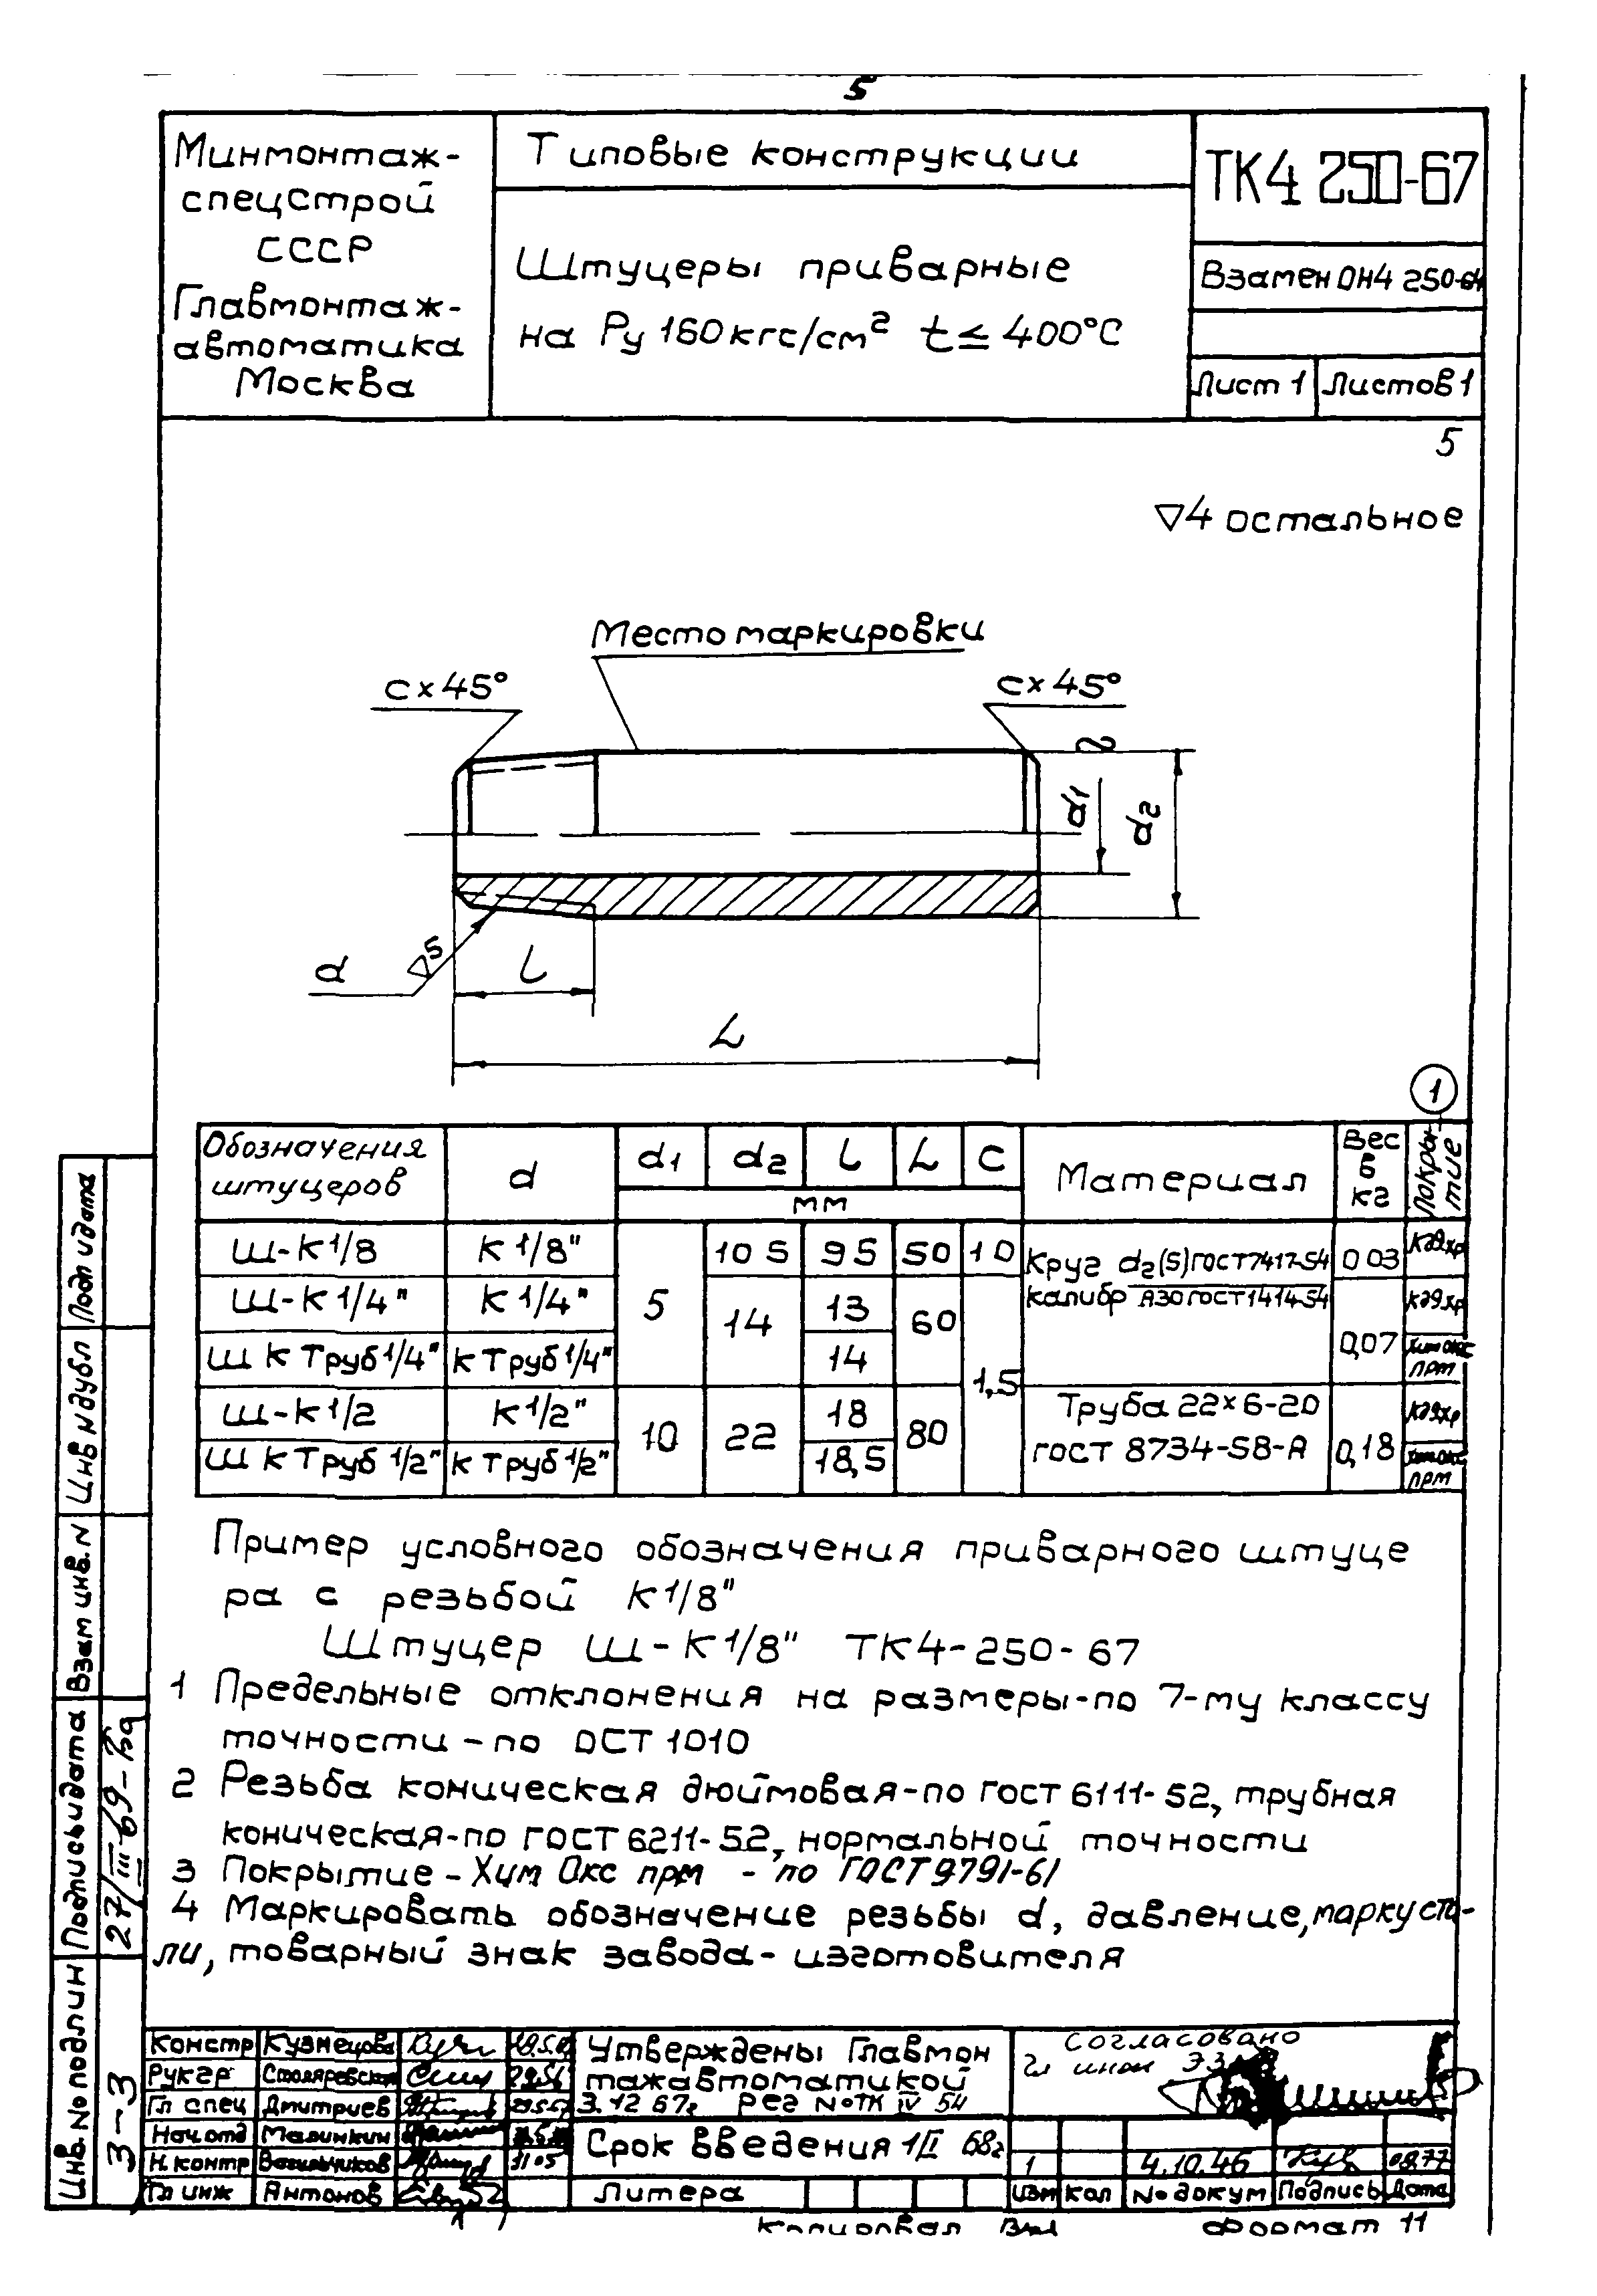 5
Минмонтаж-
спецстрой
СССР
Главмонтаж-
автоматика
Москва
Типовые конструкции
Штуцеры приварные
на Ру 160 кгс/см² t ≤ 400°С
ТК4 250-67
Взамен ОН4 250-64
Лист 1 Листов 1
5
▽4 остальное
Место маркировки
с×45° с×45°
d1
d2
d ▽5
l
L
1
Обозначения штуцеров d d1 d2 l L C Материал Вес в кг Покры-тие
мм
Ш-К1/8 К 1/8" 5 10 5 9 5 50 1 0 Круг d2(5) ГОСТ 7417-54 0 03 Кд9.хр
калибр А30 ГОСТ 1414-54
Ш-К 1/4" К 1/4" 14 13 60 1,5 0,07 Кд9.хр
Ш К Труб 1/4" К Труб 1/4" 14 Хим Окс прм
Ш-К1/2 К1/2" 10 22 18 80 Труба 22×6-20 0,18 Кд9хр
ГОСТ 8734-58-А
Ш К Труб 1/2" К Труб 1/2" 18,5 Хим Окс прм
Пример условного обозначения приварного штуце
ра с резьбой К1/8"
Штуцер Ш-К1/8" ТК4-250-67
1 Предельные отклонения на размеры-по 7-му классу
точности - по ОСТ 1010
2 Резьба коническая дюймовая-по ГОСТ 6111-52, трубная
коническая-по ГОСТ 6211-52, нормальной точности
3 Покрытие - Хим Окс прм - по ГОСТ 9791-61
4 Маркировать обозначение резьбы d, давление, марку ста-
ли, товарный знак завода-изготовителя
Инв. № подлин Подпись и дата Взам инв. N Инв N дубл Подп и дата
3-3
27/III-69-
Констр Кузнецова
Рук гр Столяревская
Гл спец Дмитриев
Нач отд Малинкин
Н. контр Васильчиков 11 05
Гл инж Антонов
Утверждены Главмон
тажавтоматикой
3.12 67г Рег № ТК IV 54
Срок введения 1/I 68г
Литера
Согласовано
Гл инж
1 4.10.46 08.77
Изм Кол № докум Подпись Дата
Копировал Формат 11